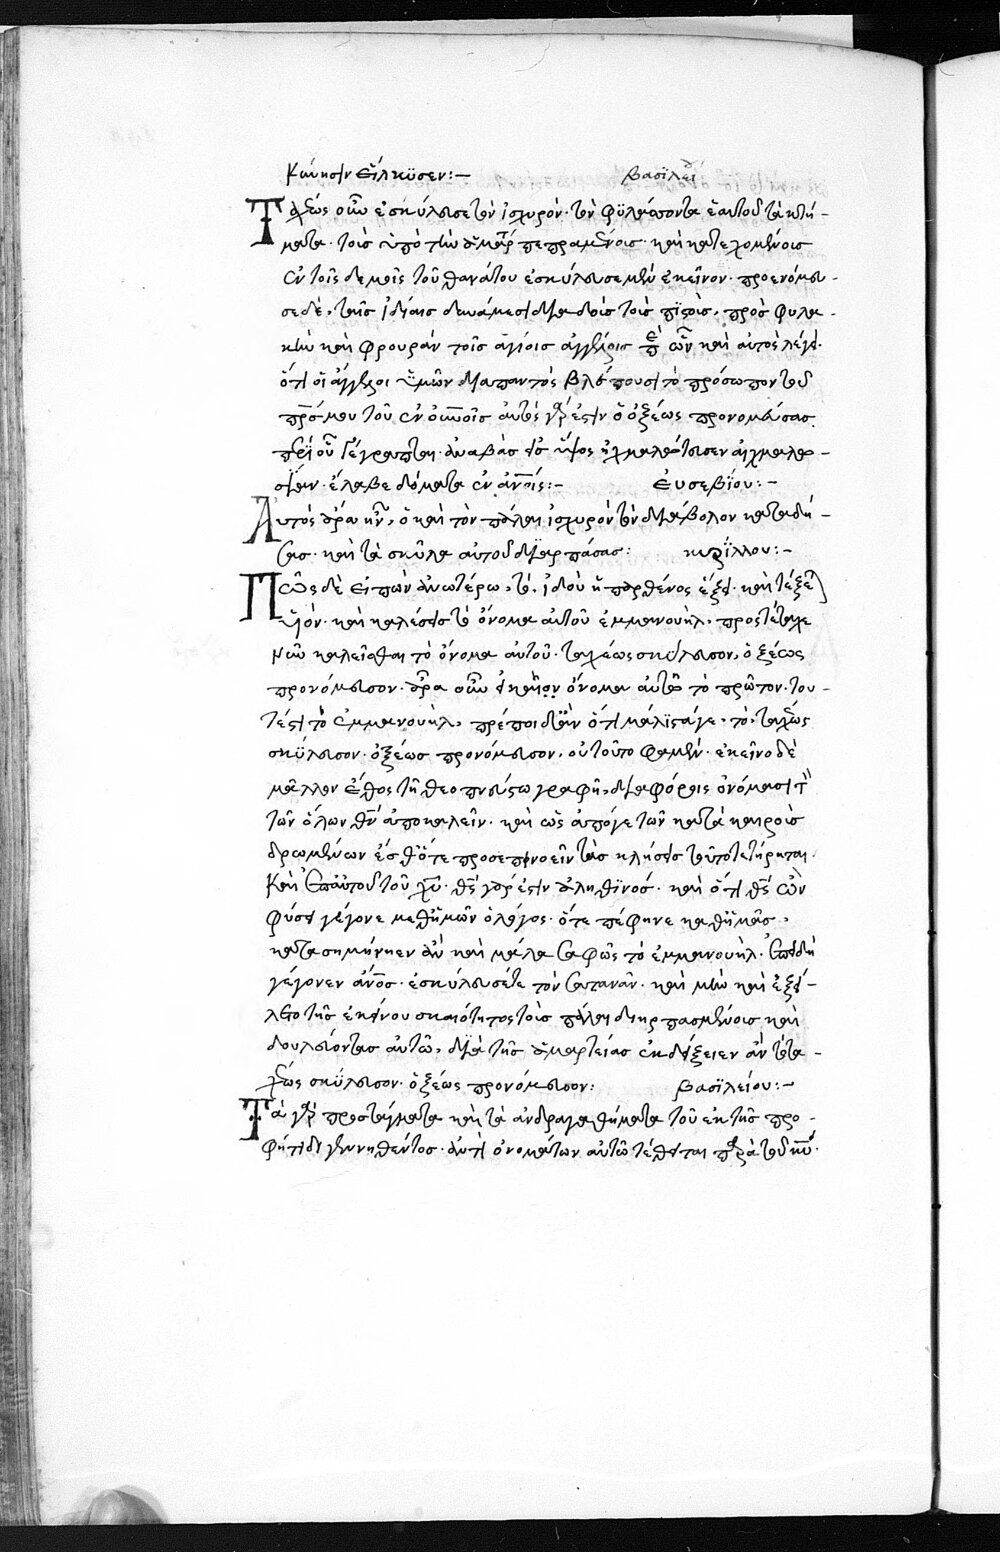 κίνησιν εἵλκυσεν:– βασιλείου
Ταχέως οὖν ἐσκύλευσε τὸν ἰσχυρόν· τὸν φυλάσσοντα ἑαυτοῦ τὰ κτή–
ματα· τοῖς ὑπὸ τὴν ἁμαρτίαν πεπραμένοις· καὶ κατεχομένοις
ἐν τοῖς δεσμοῖς τοῦ θανάτου ἐσκύλευσε μὲν ἐκεῖνον· προενόμευ
σε δὲ, ταῖς ἰδίαις δυνάμεσι διαδοὺς τοὺς πιστοὺς, πρὸς φυλα–
κὴν καὶ φρουρὰν τοῖς ἁγίοις ἀγγέλοις ἐπ ὧν καὶ αὐτὸς λέγει·
ὅτι οἱ ἄγγελοι ὑμῶν διαπαντὸς βλέπουσι τὸ πρόσωπον τοῦ
πρς μου τοῦ ἐν οὐνοῖς αὐτός γάρ ἐστιν ὁ ὀξέως προνομεύσας
περὶ οὗ γέγραπται· ἀναβὰς εἰς ὕψος ᾐχμαλώτευσεν αἰχμαλω–
σίαν· ἔλαβε δόματα ἐν ἀνοις:– Εὐσεβίου:–
Αὐτὸς ἄρα ἦν, ὁ καὶ τὸν πάλαι ἰσχυρὸν τὸν διάβολον καταδή–
σας· καὶ τὰ σκῦλα αὐτοῦ διαρπάσας: κυρίλλου:–
Πῶς δὲ εἰπὼν ἀνωτέρω, τὸ, ἰδοὺ ἡ παρθένος ἕξει· καὶ τέξεται
υἱόν· καὶ καλέσεις τὸ ὄνομα αὐτοῦ ἐμμανουὴλ, προστέταχε
νῦν καλεῖσθαι τὸ ὄνομα αὐτοῦ· ταχέως σκύλευσον, ὀξέως
προνόμευσον· ἆρα οὖν ὄνομα αὐτῶ τὸ πρῶτον· του–
τέστι τὸ ἐμμανουὴλ, πρέποι δ' ἂν ὅτι μάλιστά γε, τὸ, ταχέως
σκύλευσον· ὀξέως προνόμευσον, οὐ τοῦτο φαμέν· ἐκεῖνο δὲ
μᾶλλον ἔθος τῆ θεοπνεύστω γραφῆ, διαφόροις ὀνόμασι τὸν
τῶν ὅλων θν ἀποκαλεῖν· καὶ ὡς ἀπό γε τῶν κατὰ καιροὺς
δρωμένων ἔσθ' ὅτε προσεπινοεῖν τὰς κλήσεις τοῦτο τετήρηται·
Καὶ ἐπ' αὐτοῦ τοῦ χυ· θς γάρ ἐστιν ἀληθινός· καὶ ὅτι θς ὢν
φύσει γέγονε μεθ' ἡμῶν ὁ λόγος· ὅτε πέφηνε καθ' ἡμᾶς,
κατασημήνειεν ἂν καὶ μάλα σαφῶς τὸ ἐμμανουὴλ· ἐπειδὴ
γέγονεν ἄνος· ἐσκύλευσέ τε τὸν σατανᾶν· καὶ μὴν καὶ ἐξεί–
λετο τῆς ἐκείνου σκαιότητος τοὺς πάλαι διηρπασμένους καὶ
δουλεύοντας αὐτῶ, διὰ τῆς ἁμαρτίας ἐνδείξειεν ἂν τὸ τα–
χέως σκύλευσον· ὀξέως προνόμευσον: βασιλείου:–
Τὰ γὰρ προστάγματα καὶ τὰ ἀνδραγαθήματα τοῦ ἐκ τῆς προ–
φήτιδι γεννηθέντος· ἀντὶ ὀνομάτων αὐτῶ τέθειται παρὰ τοῦ κυ·